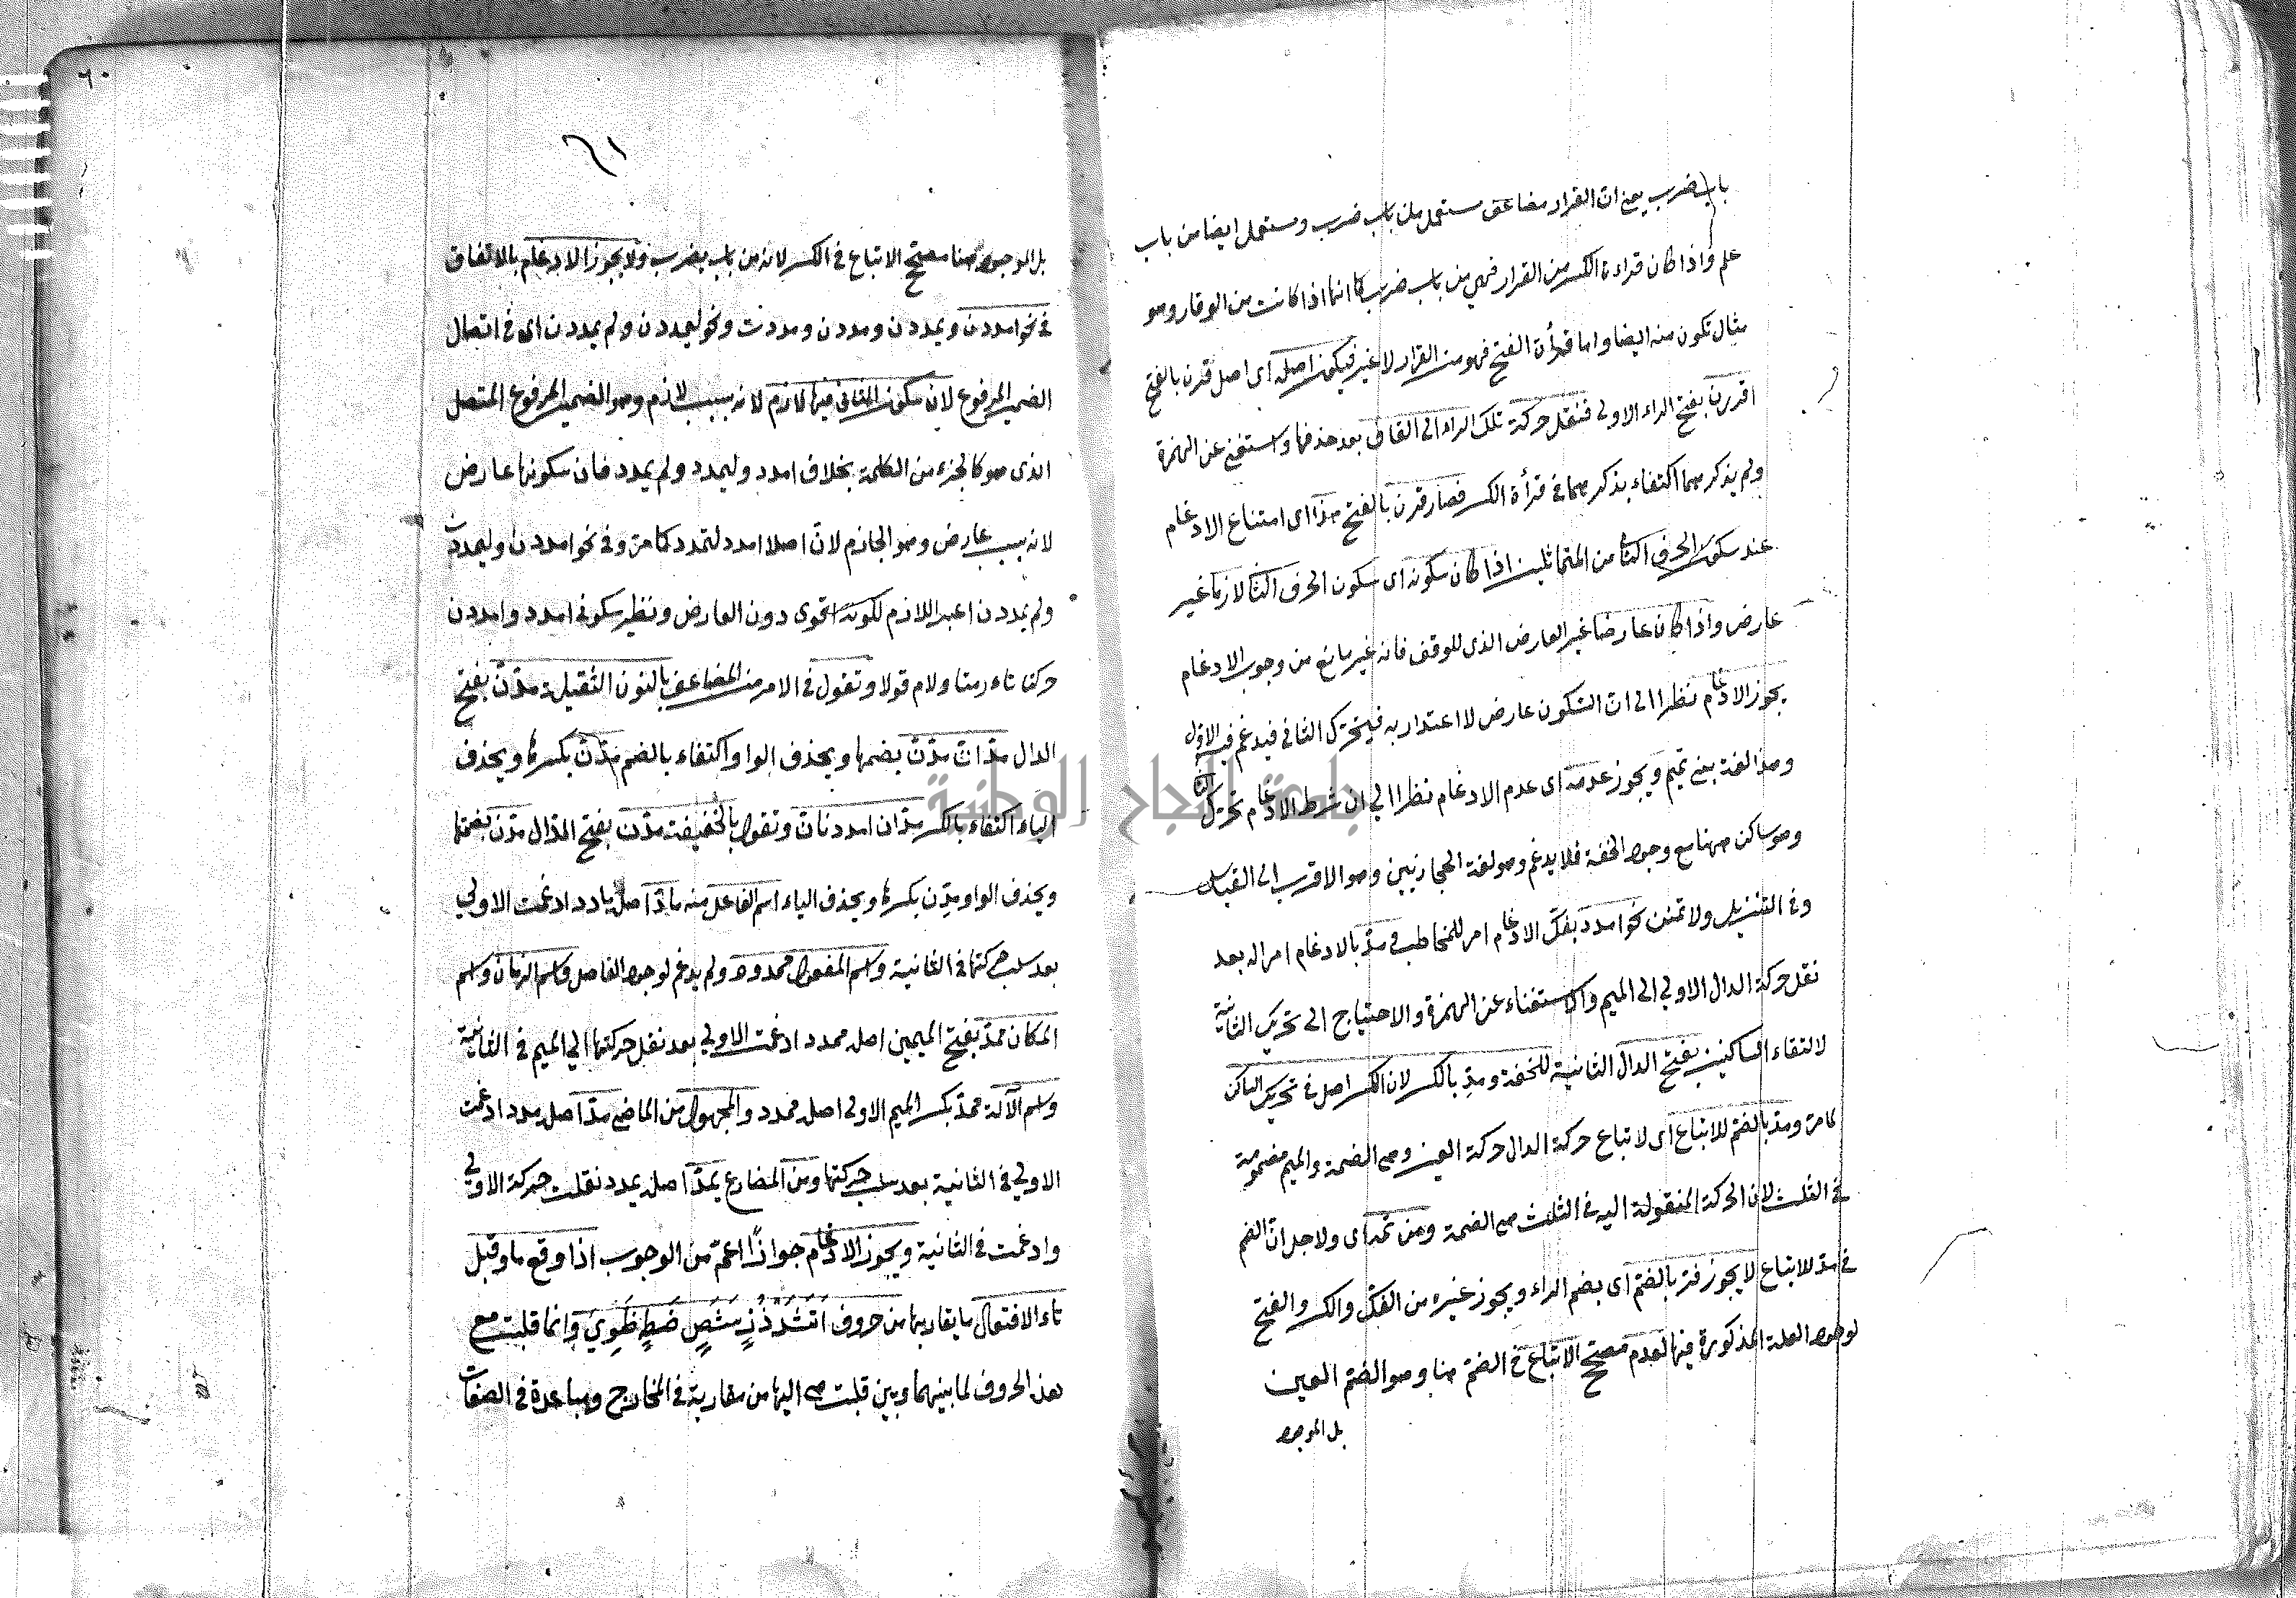 باب ضرب يعني ان القرار مضاعف مستعمل من باب ضرب ومستعمل ايضا من باب
علم واذا كان قراءة الكسر من القرار فهي من باب ضرب كما انها اذا كانت من الوقار وهو
مثال تكون منه ايضا واما قرأة الفتح فهو من القرار لا غير فيكون اصله اى اصل قرن بالفتح
اقررن بفتح الراء الاولى فنقل حركة تلك الراء الى القاف بعد حذفها واستغنى عن الهمزة
ولم يذكرهما اكتفاء بذكرهما في قرأة الكسر فصار قرن بالفتح هذا اى امتناع الادغام
عند سكون الحرف الثاني من المتماثلين اذا كان سكونه اى سكون الحرف الثاني لازما غير
عارض واذا كان عارضا غير العارض الذى للوقف فانه غير مانع من وجوب الادغام
يجوز الادغام نظرا الى ان السكون عارض لا اعتداد به فيتحرك الثاني فيدغم فيه الاول
وهذا لغة بني تميم ويجوز عدمه اى عدم الادغام نظرا الى ان شرط الادغام تحرك الثاني
وهو ساكن ههنا مع وجود الخفة فلا يدغم وهو لغة الحجازيين وهو الاقرب الى القياس
وفي التنزيل ولا تمنن نحو امدد بفك الادغام امر للمخاطب في مد بالادغام امر له بعد
نقل حركة الدال الاولى الى الميم والاستغناء عن الهمزة والاحتياج الى تحريك الثانية
لالتقاء الساكنين بفتح الدال الثانية للخفة ومد بالكسر لان الكسر اصل في تحريك الساكن
كما مر ومد بالضم للاتباع اى لاتباع حركة الدال حركة العين وهي الضمة والميم مضمومة
في الثلث لان الحركة المنقولة اليه في الثلث هي الضمة ومن ثمه اى ولاجل ان الضم
في مد للاتباع لا يجوز فر بالضم اى بضم الراء ويجوز غيره من الفك والكسر والفتح
لوجود العلة المذكورة فيها لعدم مصحح الاتباع في الضم هنا وهو الضم العين
بل الموجود
٦٠
٦١
بل الموجود ههنا مصحح الاتباع في الكسر لانه من باب يضرب ولا يجوز الادغام بالاتفاق
في نحو امددن ويمددن ومددن ومددت ونحو ليمددن ولم يمددن اى في اتصال
الضمير المرفوع لان سكون الثاني فيها لازم لانه بسبب لازم وهو الضمير المرفوع المتصل
الذى هو كالجزء من الكلمة بخلاف امدد وليمدد ولم يمدد فان سكونها عارض
لانه بسبب عارض وهو الجازم لان اصلا امدد لتمدد كما مر وفي نحو امددن وليمددن
ولم يمددن اعتبر اللازم لكونه اقوى دون العارض ونظير سكوني امدد وامددن
حركتا تاء رمتا ولام قولا وتقول في الامر من المضاعف بالنون الثقيلة مدن بفتح
الدال مدان مدن بضمها وبحذف الواو اكتفاء بالضم مدن بكسرها وبحذف
الياء اكتفاء بالكسر مدان امددنان وتقول بالخفيفة مدن بفتح الدال مدن بضمها
وبحذف الواو مدن بكسرها وبحذف الياء اسم الفاعل منه ماد اصله مادد ادغمت الاولى
بعد سلب حركتها في الثانية واسم المفعول ممدود ولم يدغم لوجود الفاصل واسم الزمان واسم
المكان ممد بفتح الميمين اصله ممدد ادغمت الاولى بعد نقل حركتها الى الميم في الثانية
واسم الآلة ممد بكسر الميم الاولى اصله ممدد والمجهول من الماضي مد اصله مدد ادغمت
الاولى في الثانية بعد سلب حركتها ومن المضارع يمد اصله يمدد نقلت حركة الاولى
وادغمت في الثانية ويجوز الادغام جوازا اعم من الوجوب اذا وقع ما وقبل
تاء الافتعال ما يقاربها من حروف اتثدذز سشص ضطظوي وانما قلبت مع
هذه الحروف لما بينهما وبين قلبت هي اليها من مقاربة في المخارج ومباعدة في الصفات
جامعة النجاح الوطنية